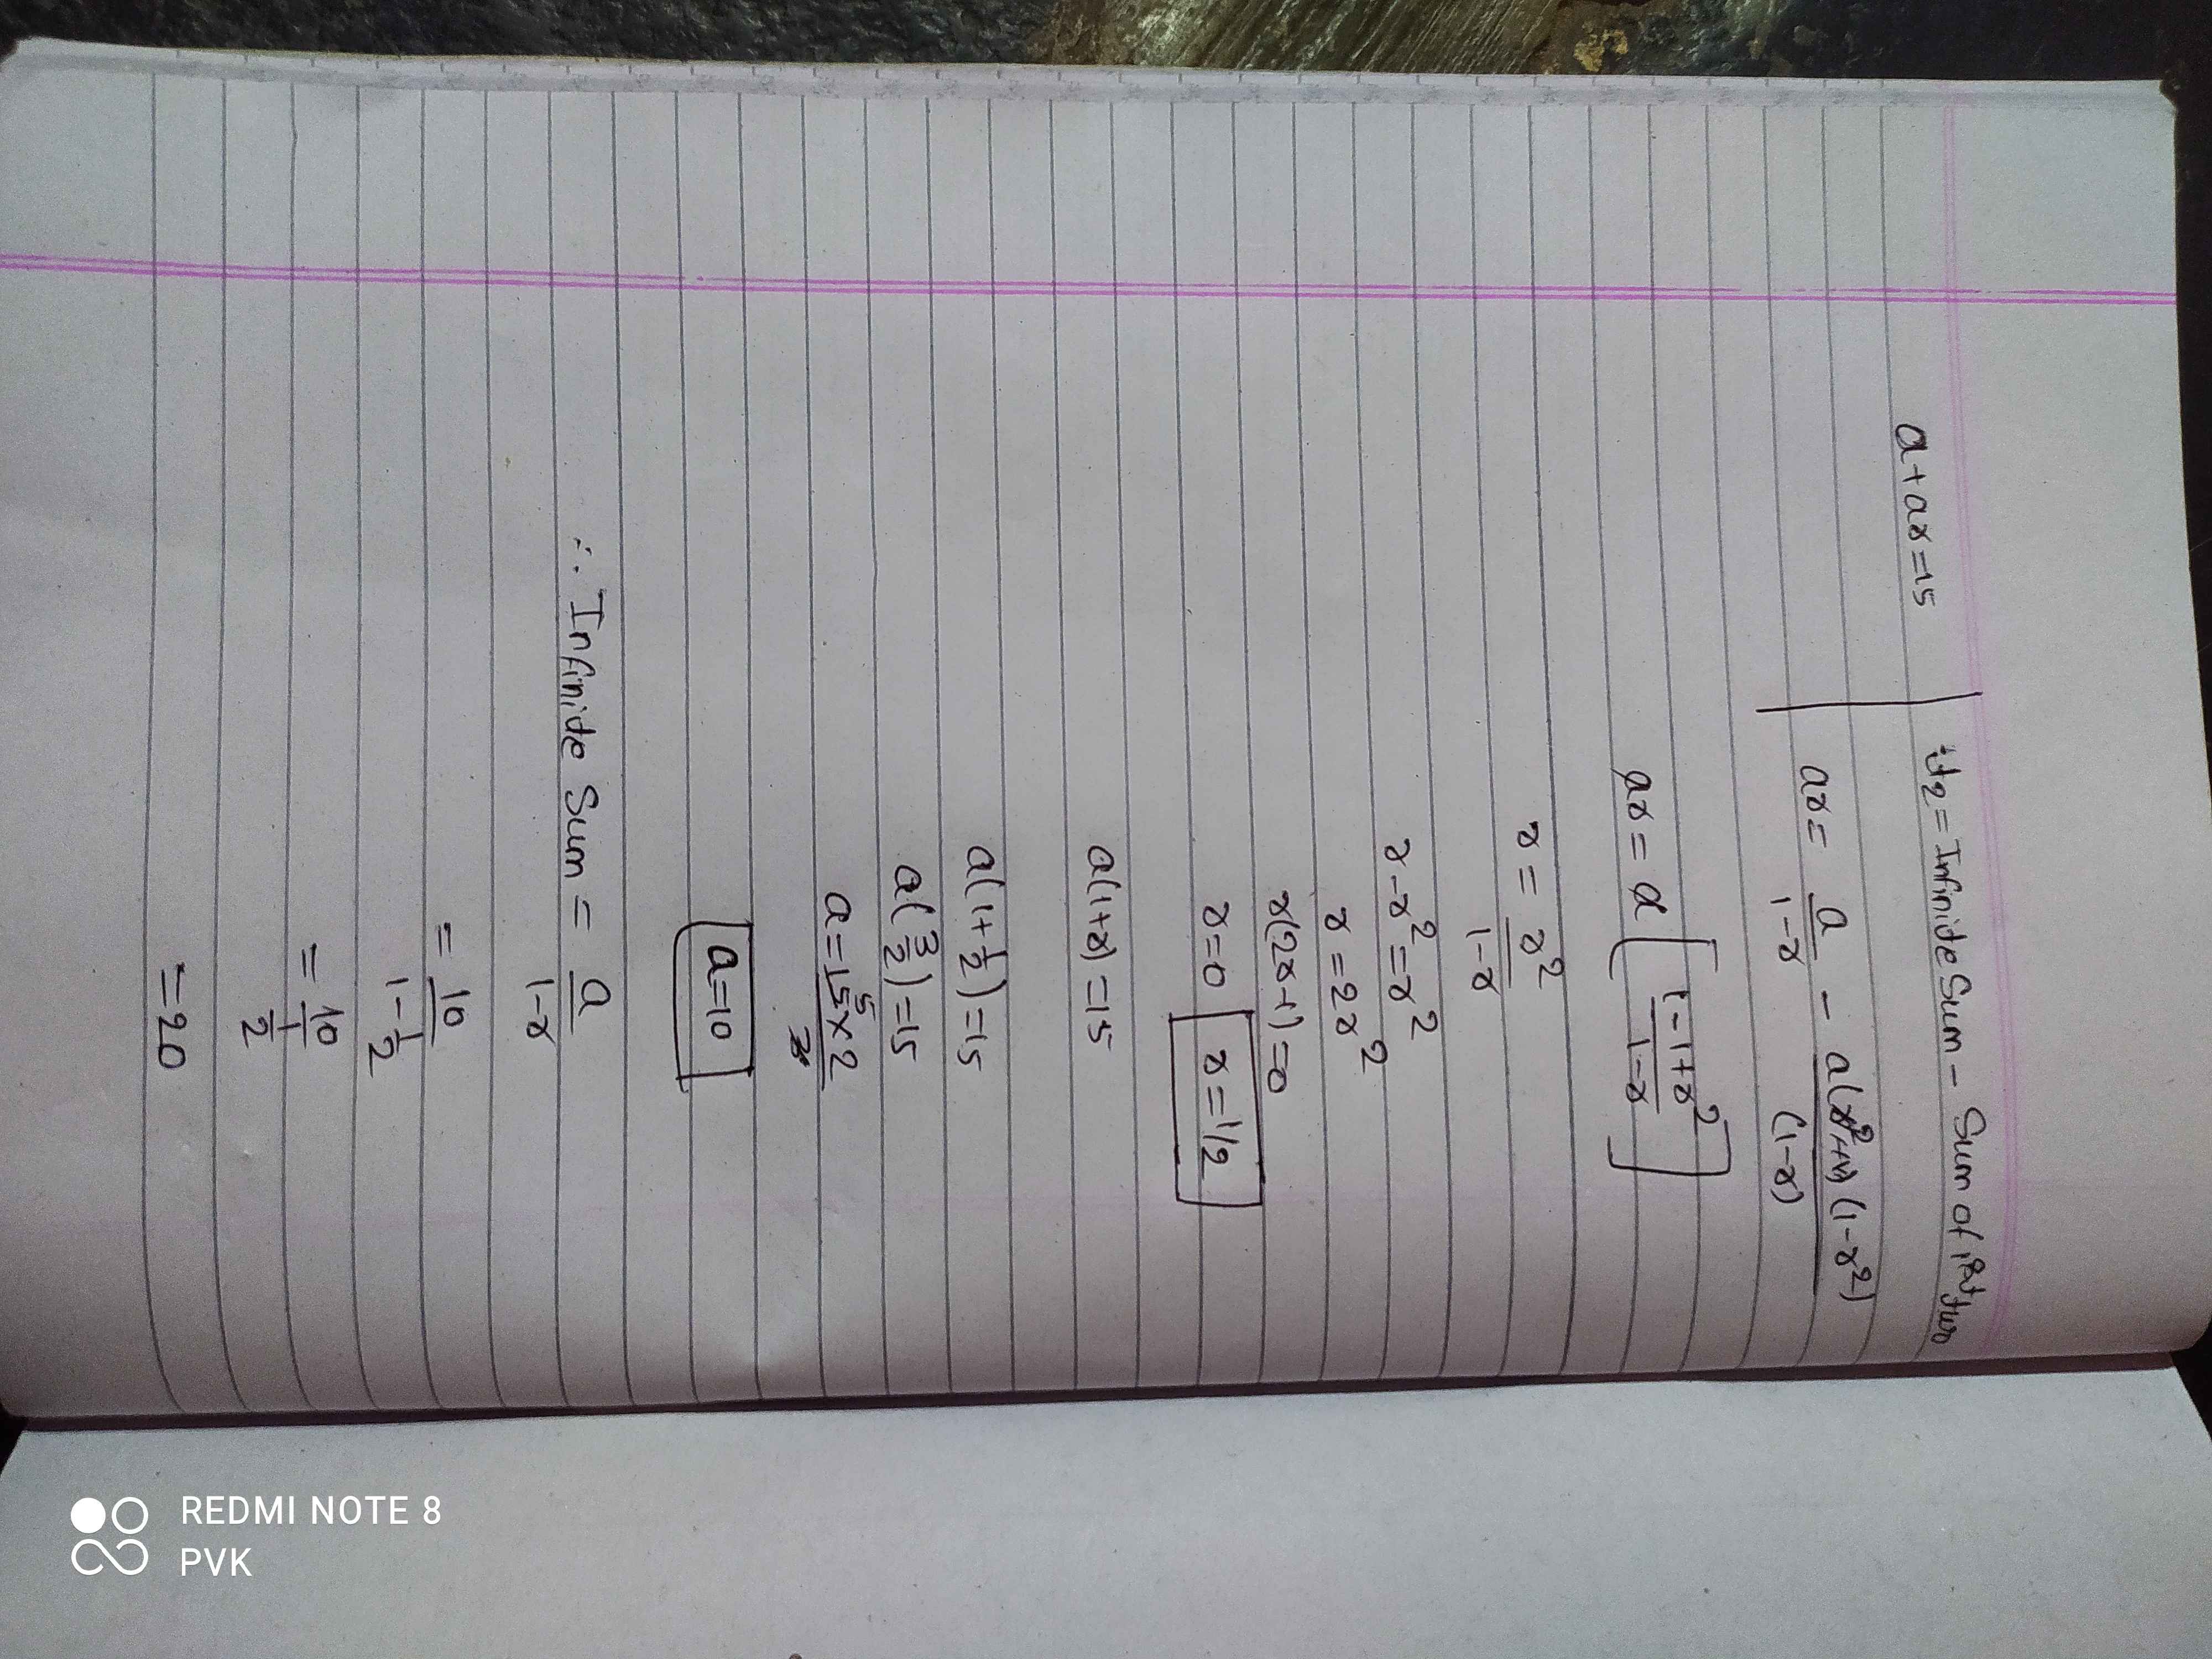 a+ar=15
t2=Infinide Sum - Sum of 1st two
ar= a/1-r - a(1-r²)/(1-r)
ar = a [1-1+r²/1-r]
r = r²/1-r
r-r²=r²
r=2r²
r(2r+1)=0
r=0 r=1/2
a(1+r)=15
a(1+1/2)=15
a(3/2)=15
a=15 5×2/3
a=10
∴ Infinide Sum = a/1-r
= 10/1-1/2
= 10/1/2
=20
REDMI NOTE 8
PVK